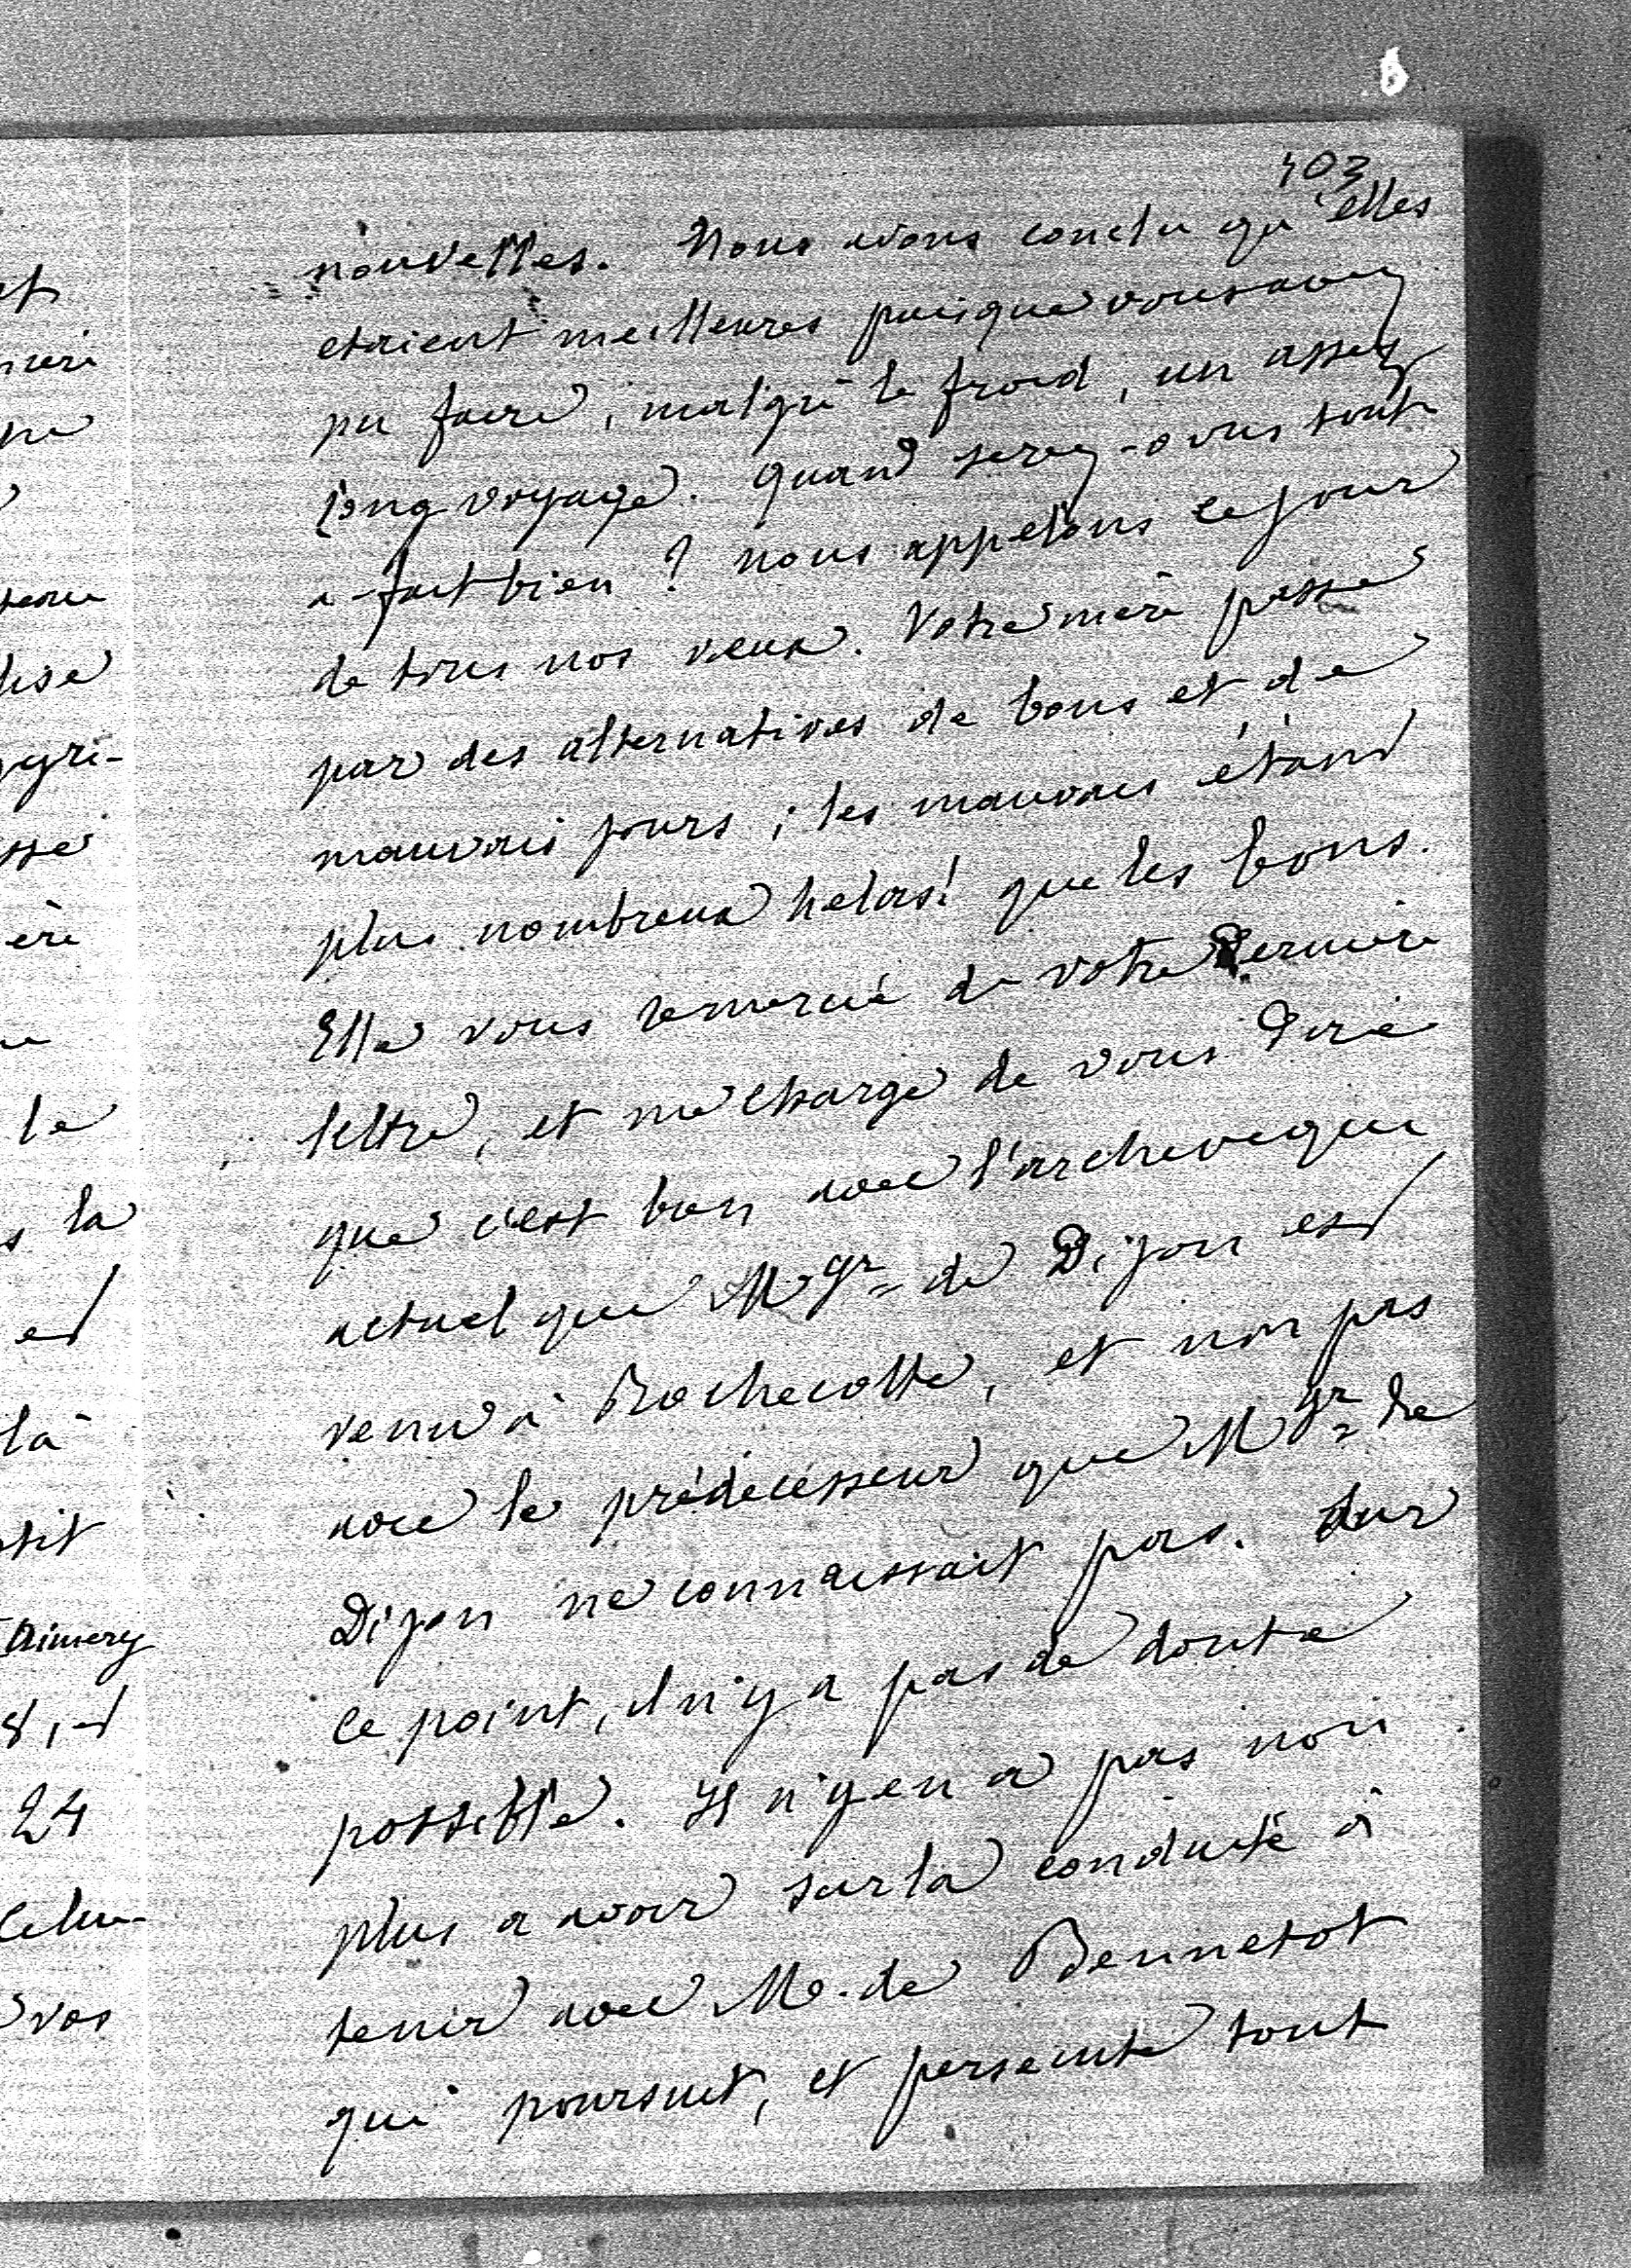 403
nouvelles. Nous avons conclu qu'elles
etaient meilleures puisque vous avez
pu faire, malgré le froid, un assez
long voyage. Quand serez-vous tout
a-fait bien ? nous appelons ce jour
de tous nos vœux. Votre mère passe
par des alternatives de bons et de
mauvais jours ; les mauvais étant
plus nombreux helas! que les bons.
Elle vous remercie de votre derniere
lettre, et me charge de vous dire
que c'est bien avec l'archeveque
actuel que Mgr de Dijon est
venu à Rochecotte, et non pas
avec le prédécesseur que Mgr de
Dijon ne connaissait pas. Sur
ce point, il n'y a pas de doute
possible. Il n'y en a pas non
plus a avoir sur la conduite à
tenir avec Me. de Bennetot
qui poursuit, et persecute tout
et
ne
lise
ssé
ère
la
s la
et
là
tit
Aimery
8, et
24
vos